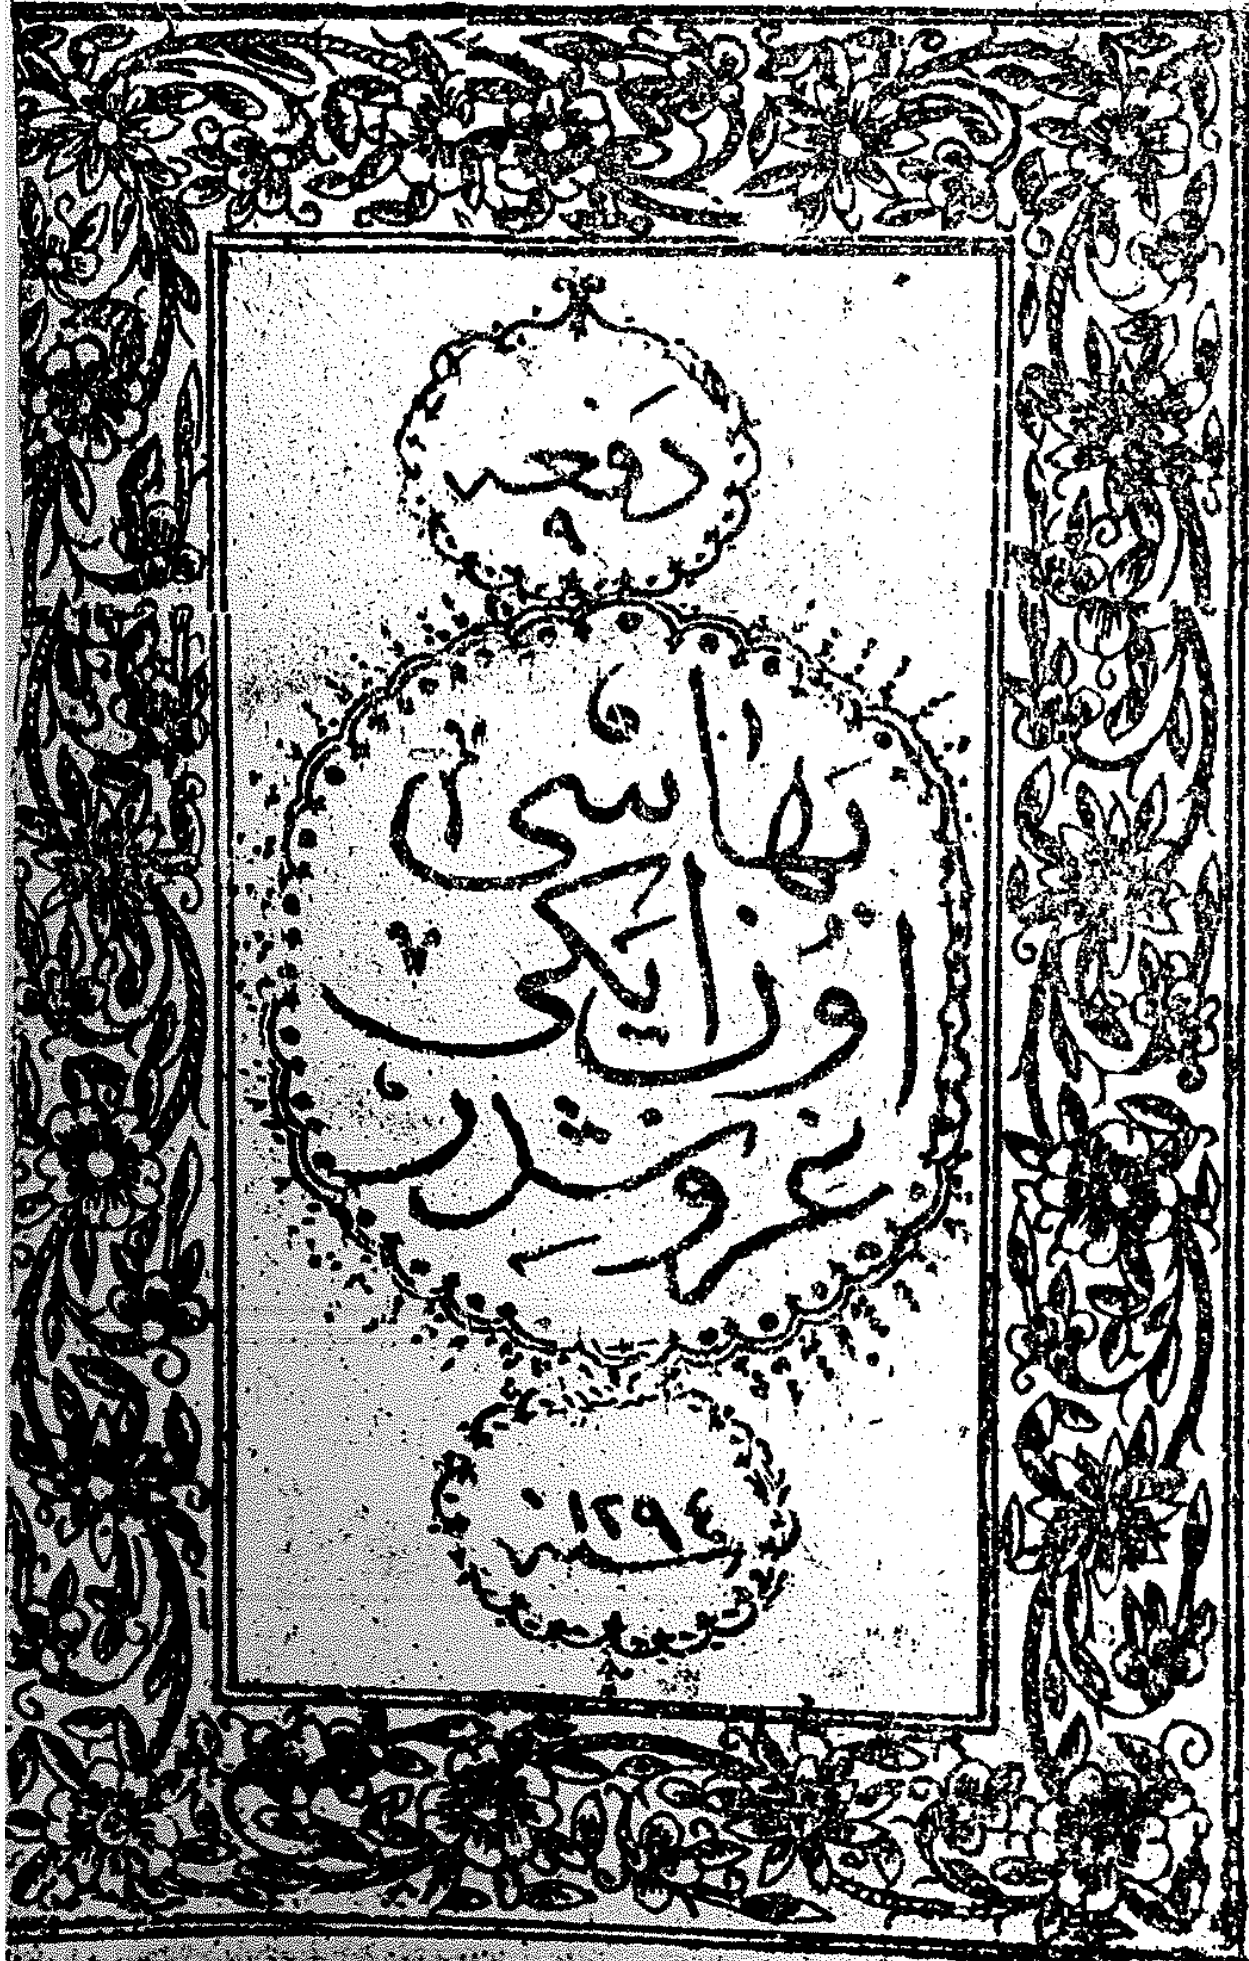 دفعه
٩
بهاسى
اون ايكى
غروشدر
سنه ١٢٩٤